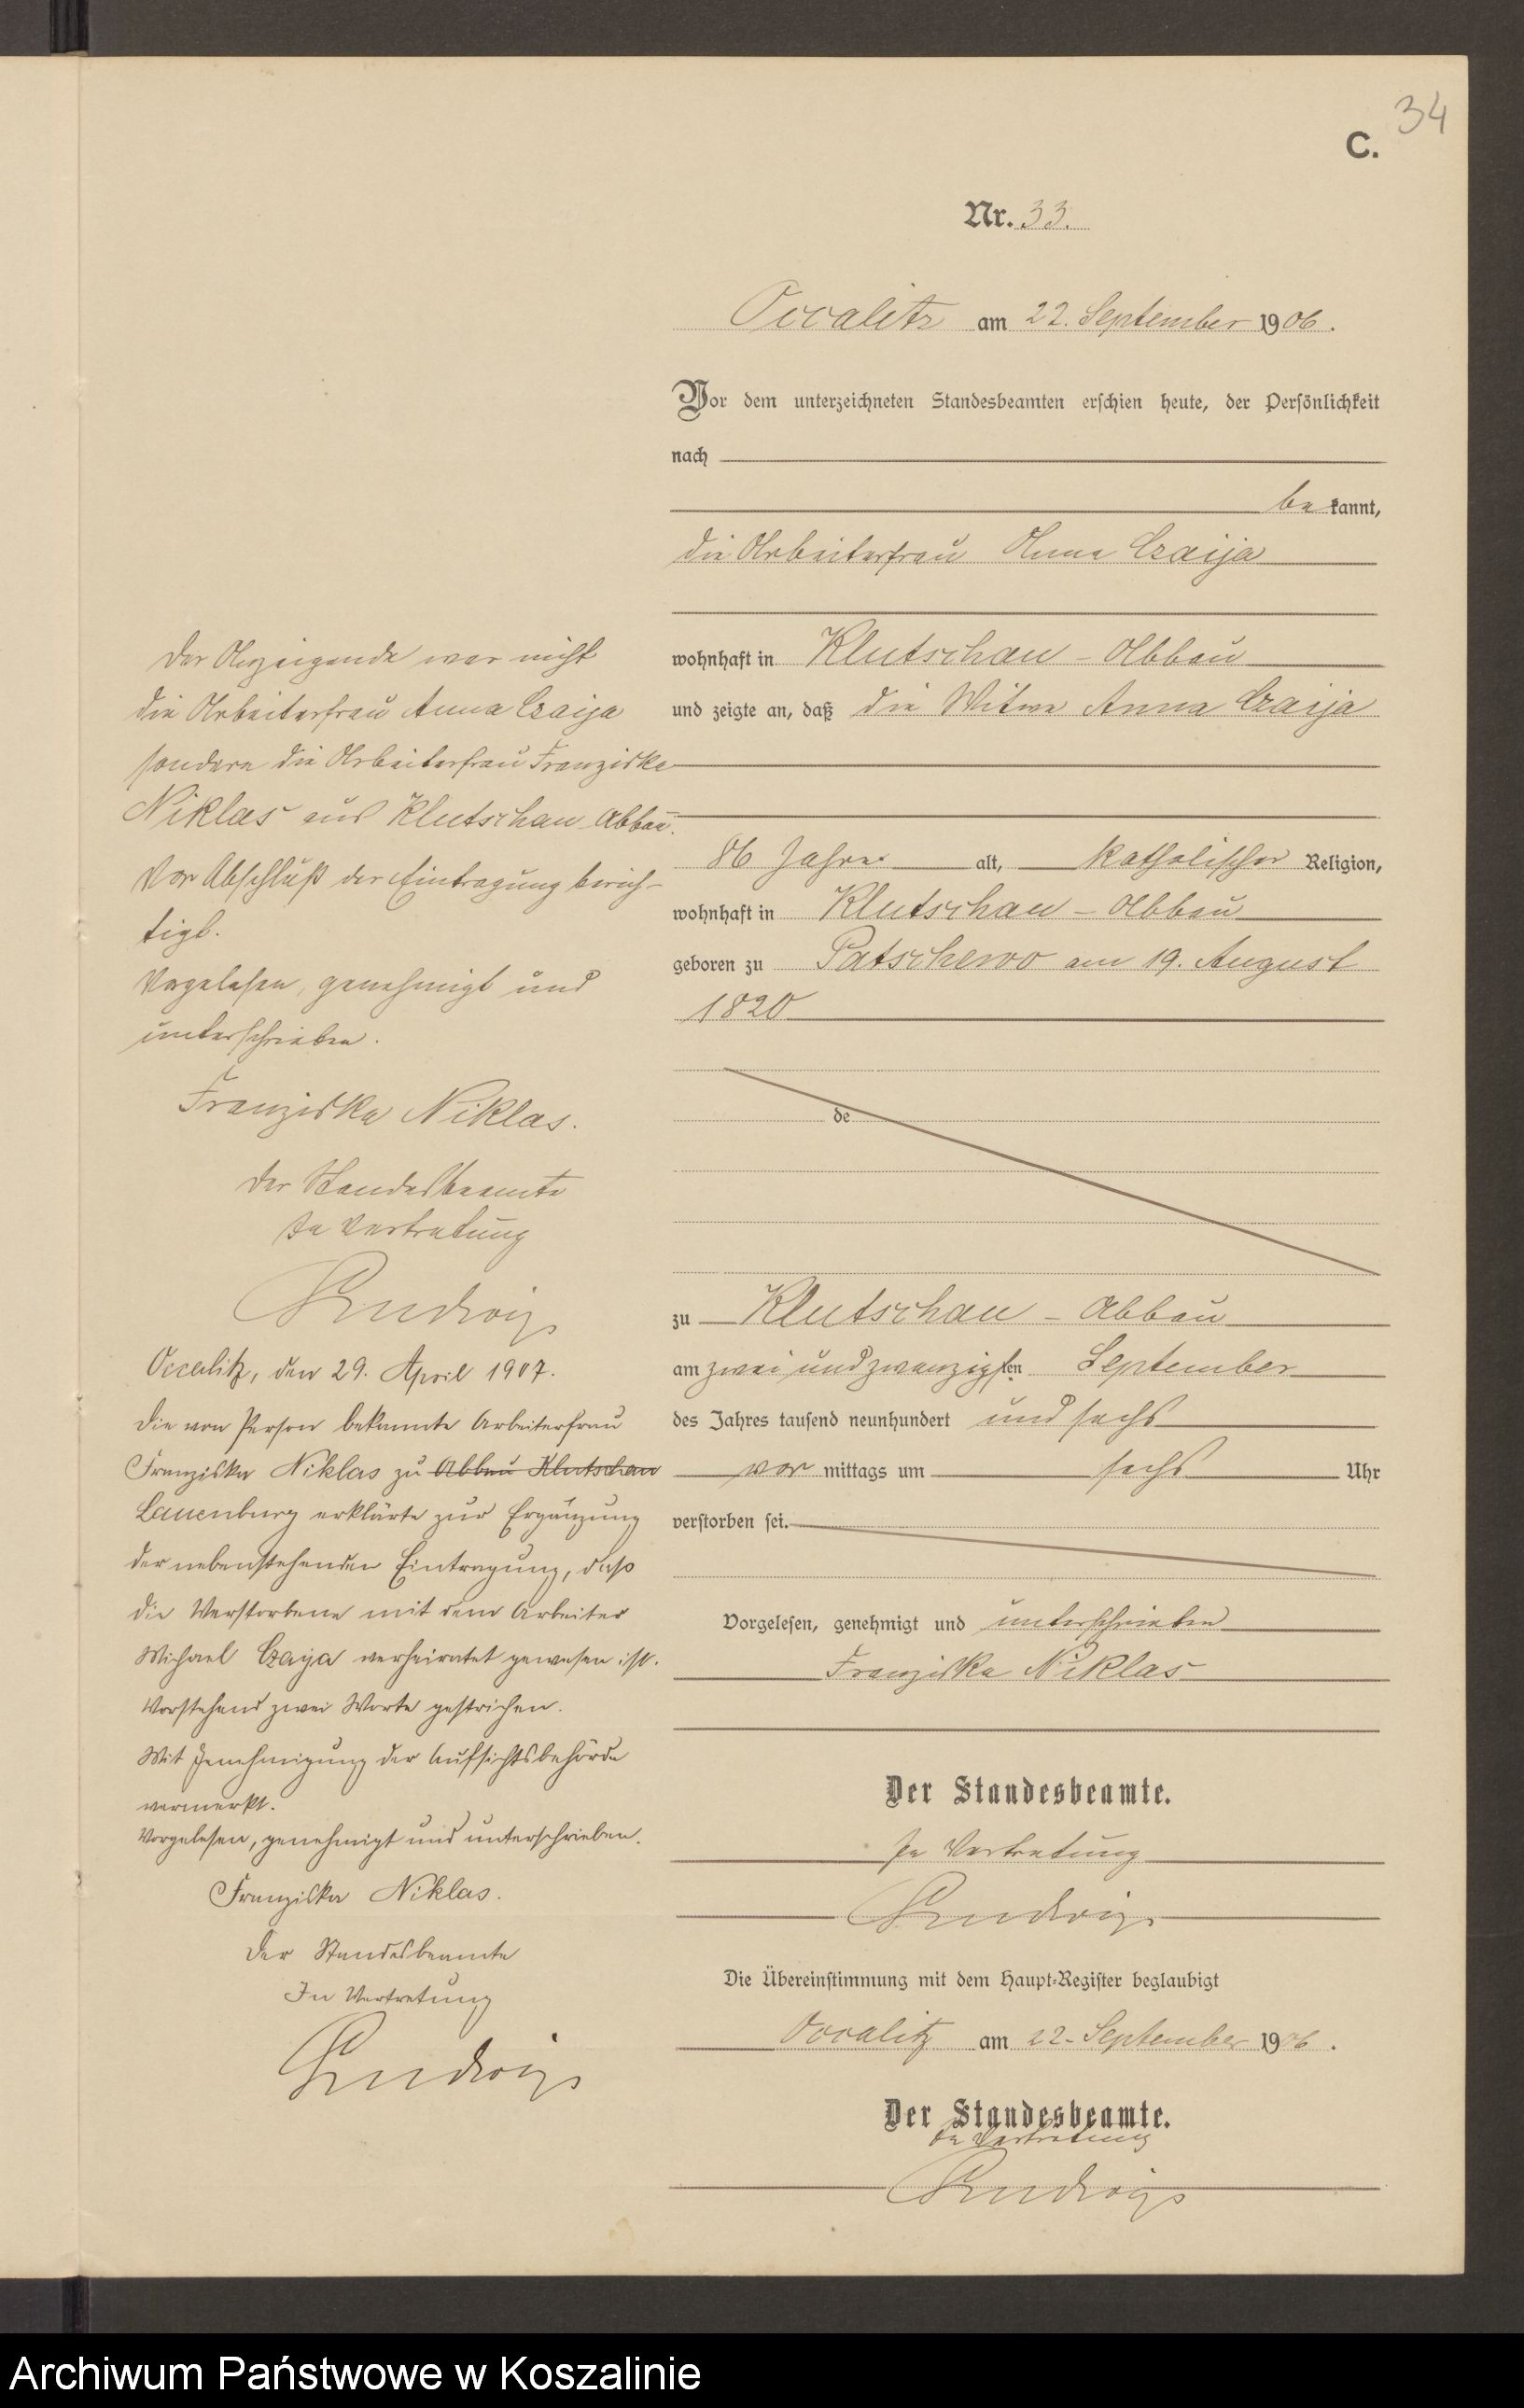 34
C.
Nr. 33.
Occalitz am 22. September 1906.
Vor dem unterzeichneten Standesbeamten erschien heute, der Persönlichkeit
nach
be kannt,
die Arbeiterfrau Anna Czaija
wohnhaft in Klutschau - Abbau
und zeigte an, daß die Witwe Anna Czaija
86 Jahre alt, katholischer Religion,
wohnhaft in Klutschau - Abbau
geboren zu Patschewo am 19. August
1820
de
zu Klutschau - Abbau
am zwei und zwanzigsten September
des Jahres tausend neunhundert und sechs
vor mittags um sechs Uhr
verstorben sei.
Vorgelesen, genehmigt und unterschrieben
Franziska Niklas
Der Standesbeamte.
In Vertretung
Die Übereinstimmung mit dem Haupt-Register beglaubigt
Occalitz am 22. September 1906.
Der Standesbeamte.
In Vertretung
Der Anzeigende war nicht
die Arbeiterfrau Anna Czaija
sondern die Arbeiterfrau Franziska
Niklas aus Klutschau Abbau.
Vor Abschluß der Eintragung berich-
tigt.
Vorgelesen, genehmigt und
unterschrieben.
Franziska Niklas.
Der Standesbeamte
In Vertretung
Occalitz, den 29. April 1907.
Die von Person bekannte Arbeiterfrau
Franziska Niklas zu Abbau Klutschau
Lauenburg erklärte zur Ergänzung
der nebenstehenden Eintragung, daß
die Verstorbene mit dem Arbeiter
Michael Czaija verheiratet gewesen ist.
Vorstehend zwei Worte gestrichen.
Mit Genehmigung der Aufsichtsbehörde
vermerkt.
Vorgelesen, genehmigt und unterschrieben.
Franziska Niklas.
Der Standesbeamte
In Vertretung
Archiwum Państwowe w Koszalinie